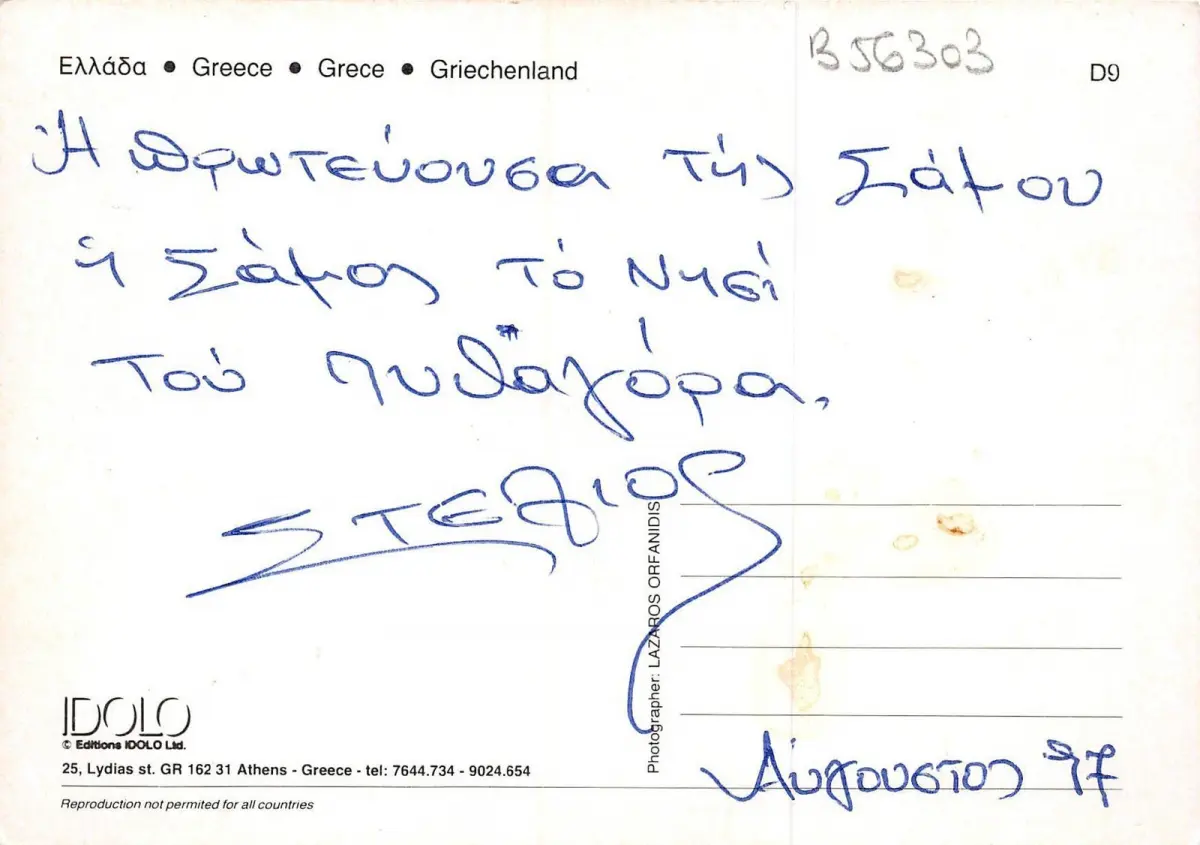 Ελλάδα • Greece • Grece • Griechenland
B56303
D9
Ἡ πρωτεύουσα τής Σάμου
ἡ Σάμος τό Νησί
τού Πυθαγόρα,
ΣΤΕΛΙΟΣ
Photographer: LAZAROS ORFANIDIS
IDOLO
© Editions IDOLO Ltd.
25, Lydias st. GR 162 31 Athens - Greece - tel: 7644.734 - 9024.654
Reproduction not permited for all countries
Αύγουστος 97